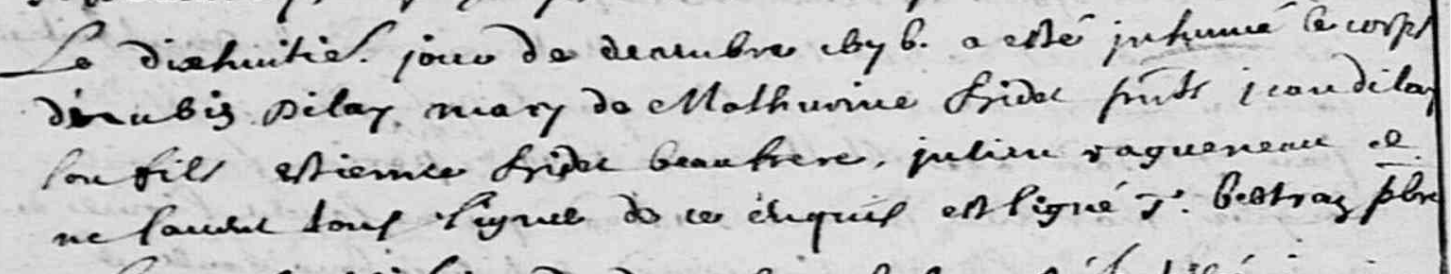 Le dixhuitie. jour de decembre a esté inhumé le corps
pilay, mary de Mathurine fridet pnts jean pilay
son fils estienne fridet beaufrere, julien ragueneau et
ne scavent tous signer de ce enquis est signé pbre